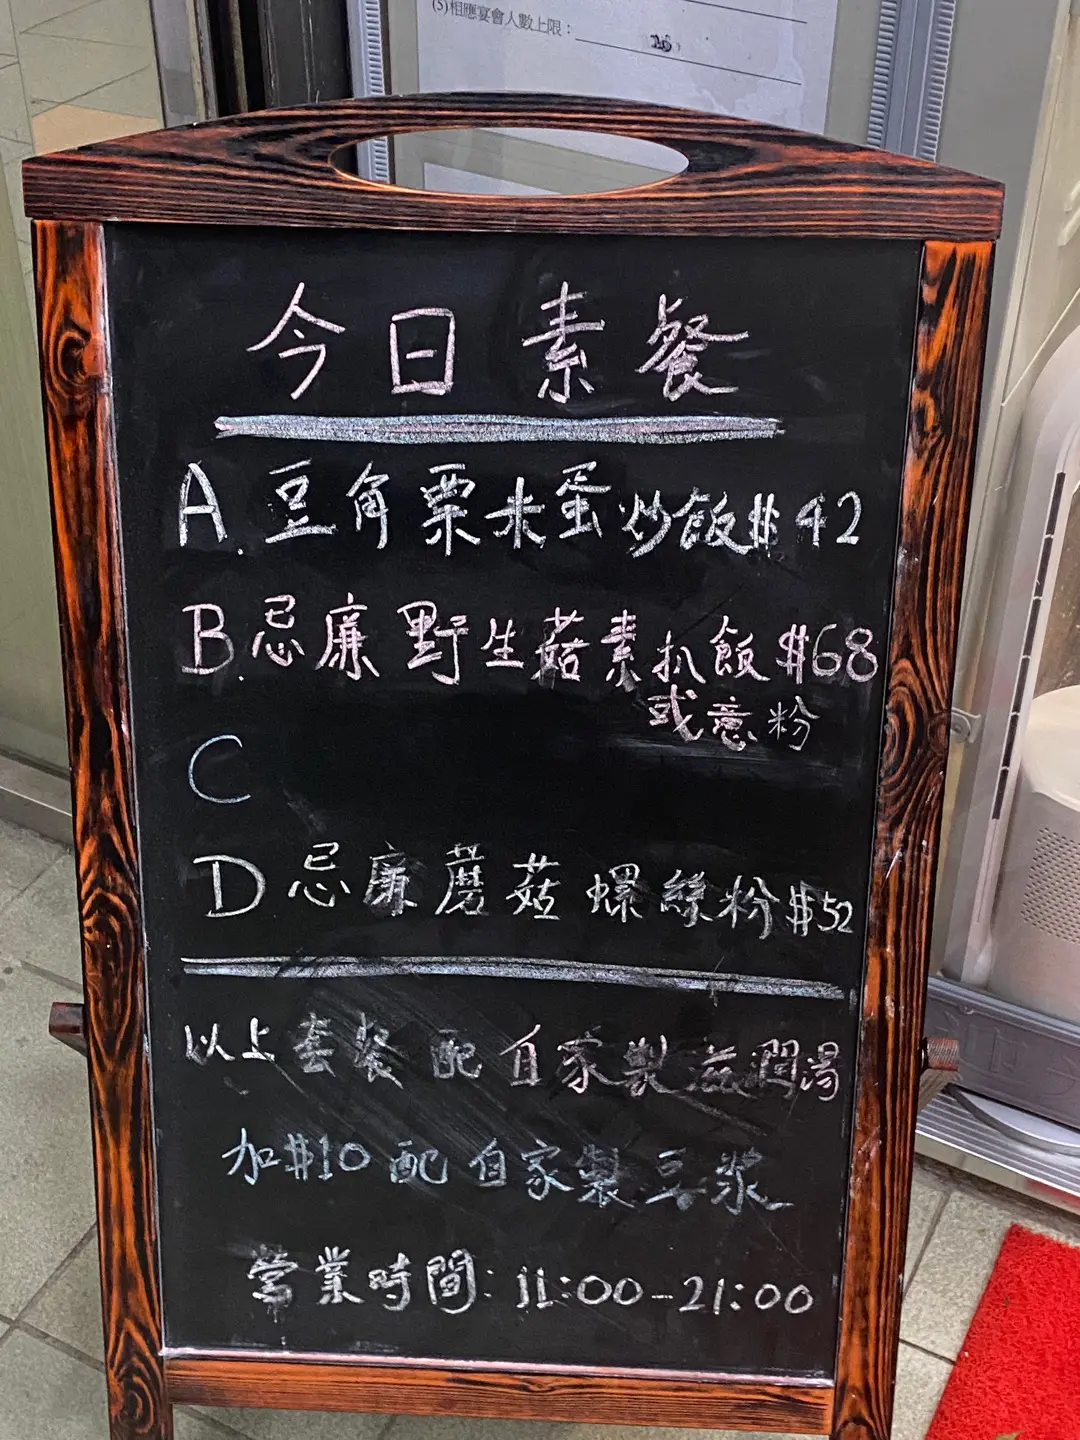 (5)相應宴會人數上限：
今日素餐
A. 豆角粟米蛋炒飯$42
B. 忌廉野生菇素扒飯$68
或意粉
C
D 忌廉蘑菇螺絲粉$52
以上套餐配自家製滋潤湯
加$10配自家製豆漿
營業時間: 11:00-21:00